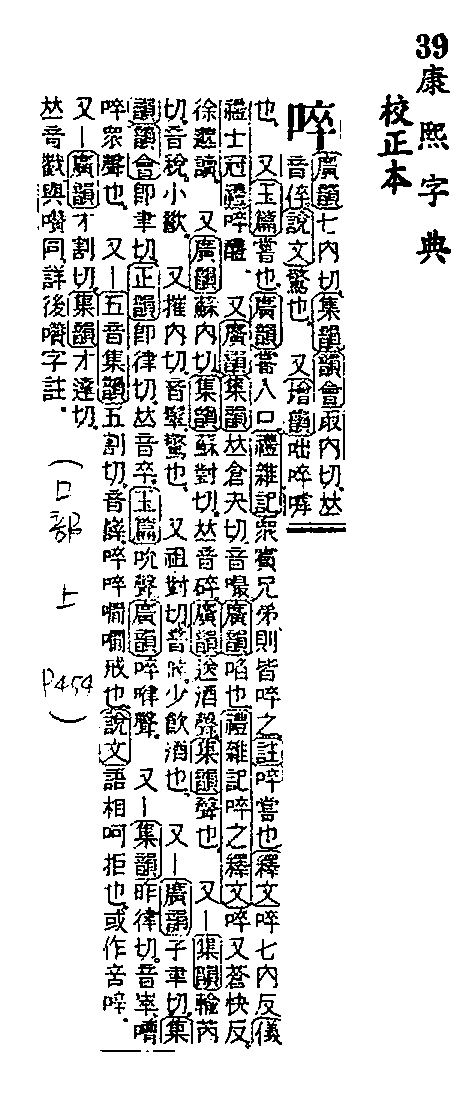 39康熙字典
校正本
啐
廣韻七內切集韻韻會取內切𠀤
音倅說文驚也。又增韻咄啐
也。又玉篇嘗也廣韻嘗入口禮雜記衆賓兄弟則皆啐之註啐嘗也釋文啐七內反儀
禮士冠禮啐醴。又廣韻集韻𠀤倉夬切音嘬廣韻啗也禮雜記啐之釋文啐又蒼快反
徐邈讀。又廣韻蘇內切集韻蘇對切𠀤音碎廣韻送酒聲集韻聲也。又—集韻輸芮
切音稅小歠。又摧內切音驚也。又祖對切音晬少飲酒也。又—廣韻子聿切集
韻韻會卽聿切正韻卽律切𠀤音卒玉篇吮聲廣韻啐聲。又—集韻昨律切音崒嘈
啐衆聲也。又—五音集韻五割切音啐啐戒也說文語相呵拒也或作啐。
又—廣韻才割切集韻才達切
𠀤音巀與囋同詳後囋字註。
(口部上 P454)